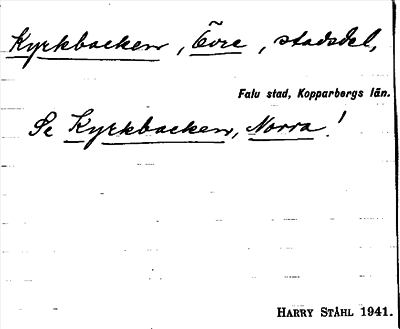 Kyrkbacken, Övre, stadsdel,
Falu stad, Kopparbergs län.
Se Kyrkbacken, Norra!
HARRY STÅHL 1941.